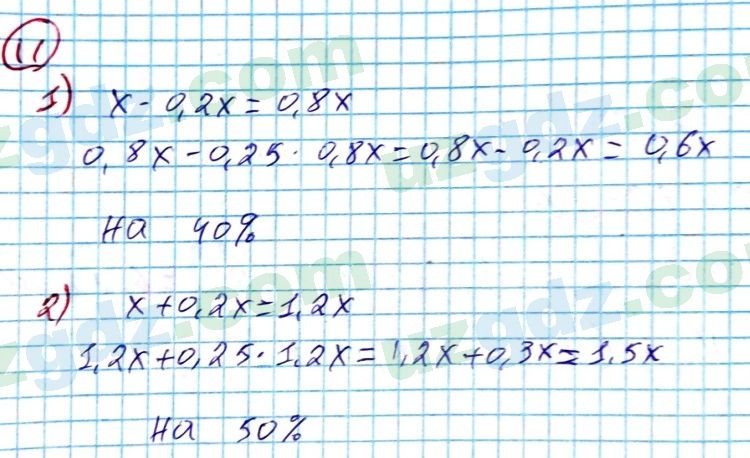 11
1) x - 0,2x = 0,8x
0,8x - 0,25 · 0,8x = 0,8x - 0,2x = 0,6x
на 40%
2) x + 0,2x = 1,2x
1,2x + 0,25 · 1,2x = 1,2x + 0,3x = 1,5x
на 50%
uzgdz.com
uzgdz.com
uzgdz.com
uzgdz.com